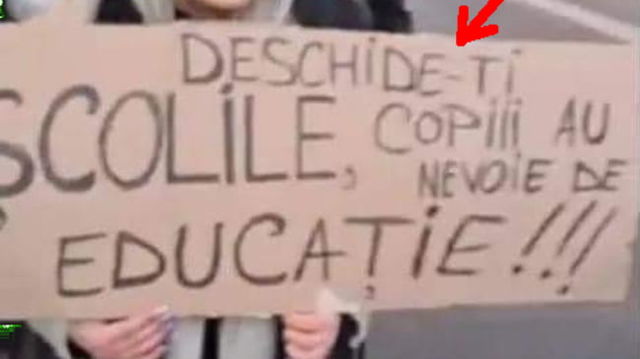 DESCHiDE-Ti
ȘCOLiLE, COPiii AU
NEVOiE DE
EDUCAȚiE!!!